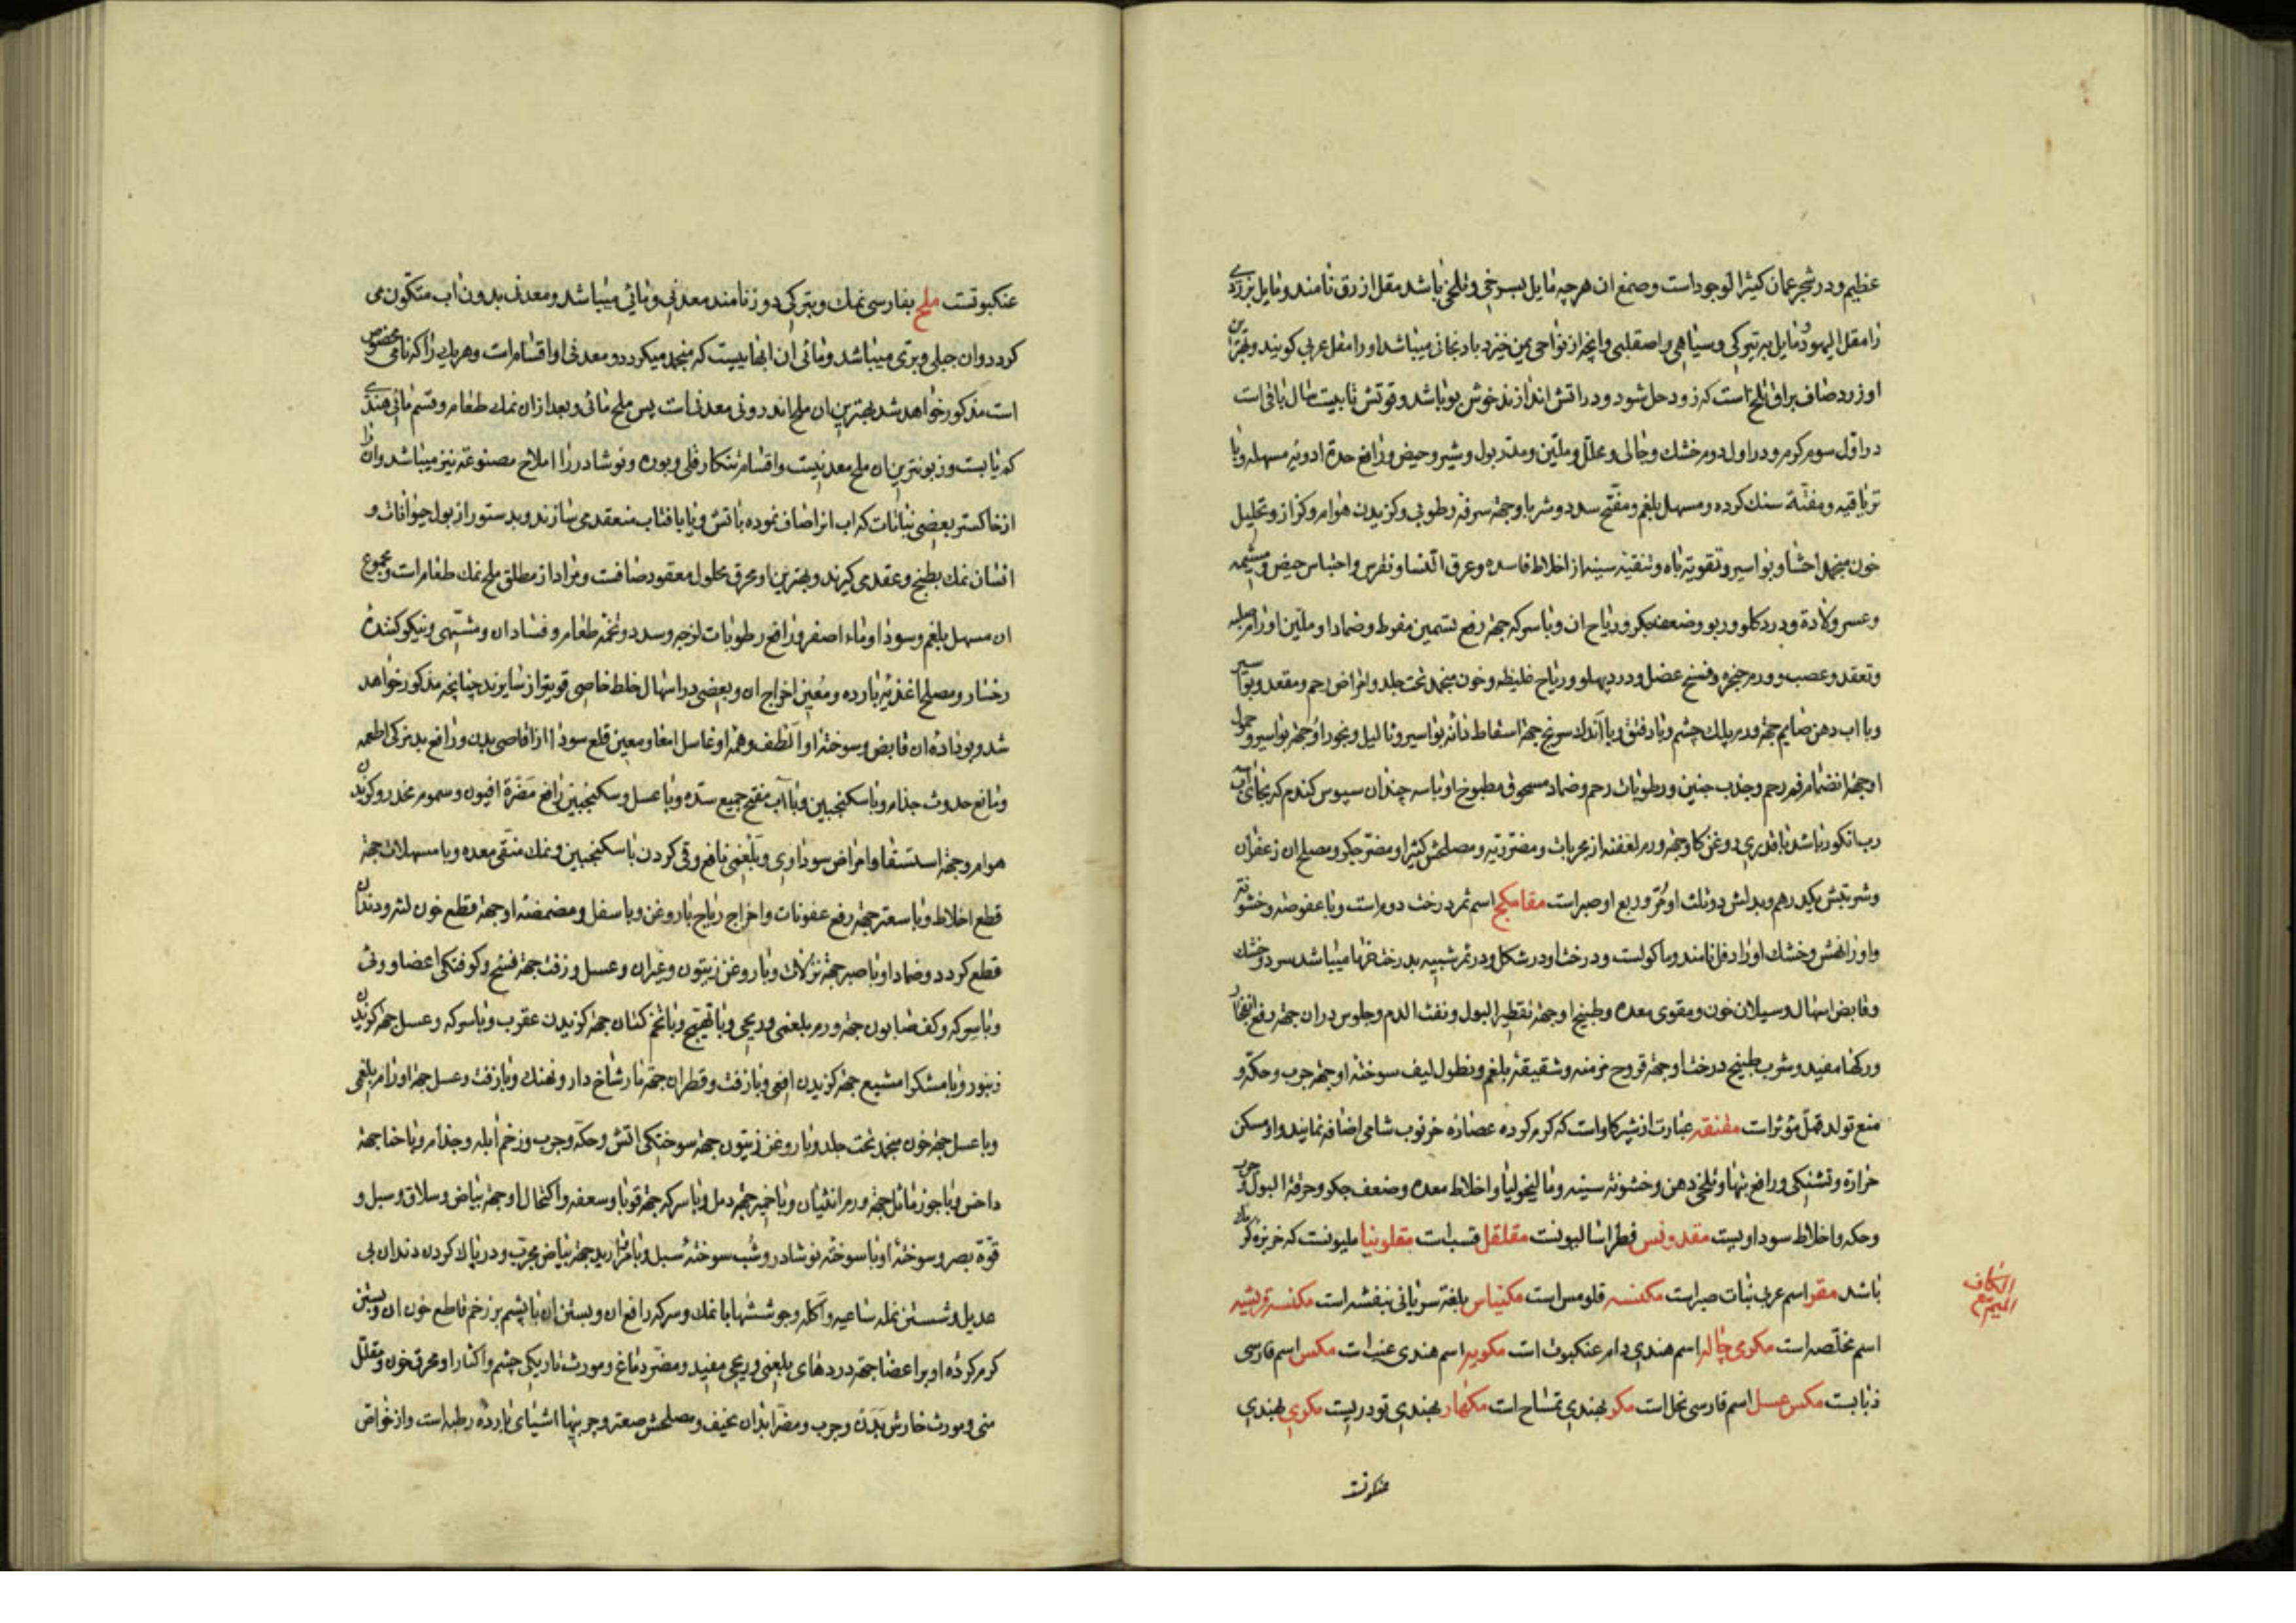 عظیم و در شجر عمان کثیر الوجود است و صمغ ان هرچه مایل بسرخی و تلخی باشد مقل ازرق نامند و مایل بزردی
را مقل الیهود و مایل بتیرکی و سیاهی را صقلبی و انچه از نواحی یمن خیزد بادنجانی میباشد و او را مقل عربی کویند و بهترین
او زرد صاف براق تلخ است که زود حل شود و در اتش اندازند خوش بو باشد و قوتش تا بیست سال باقی است
در اول سوم کرم و در اول دوم خشک و جالی و محلل و ملین و مدر بول و شیر و حیض و رافع حدة ادویه مسهله و با
تریاقیه و مفتة سنک کرده و مسهل بلغم و مفتح سدد و شربا و جهة سرفه رطوبی و کزیدن هوام و کزاز و تحلیل
خون منجمد احشا و بواسیر و تقویة باه و تنقیه سینه از اخلاط فاسده و عرق النسا و نقرس و احتباس حیض و مشیمه
و عسر ولادة و درد کلو و ربو و ضعف جکر و ریاح ان و با سرکه جهة رفع تسمین مفرط و ضمادا و ملین اورام صلبه
و تعقد عصب و ورم حنجره و فسخ عضل و درد پهلو و ریاح غلیظه و خون منجمد تحت جلد و امراض رحم و مقعد و بواسیر
و با اب دهن صایم جهة ورم پلک چشم و باد فتق و با اندک سورنج جهة اسقاط دانه بواسیر و ثالیل و بخور او جهة بواسیر و حمول
او جهة انضمام فم رحم و جذب جنین و رطوبات رحم و ضماد مسحوق مطبوخ او با سه چندان سبوس کندم که بجای اب
رب انکور باشد با قدری روغن کاو جهة ورم لعفنه از مجربات و مضر ریه و مصلحش کتیرا و مضر جکر و مصلح ان زعفران
و شربتش یکدرهم و بدلش دو ثلث او مر و ربع او صبر است مقامکج اسم ثمر درخت دوم است و با عفوصة و خشونة
و او را نفش و خشک او را دفل نامند و ماکولست و درخت او در شکل و در ثمر شبیه بدرخت خرما میباشد سرد و خشک
و قابض اسهال و سیلان خون و مقوی معده و طبیخ او جهة تقطیر البول و نفث الدم و جلوس در ان جهة رفع انفجار
ورکها مفید و شرب طبیخ درخت او جهة قروح مزمنه و شقیقه بلغم و نطول لیف سوخته او جهة جرب و حکه و
منع تولد قمل مؤثر است مقنقه عبارت از شیر کاو است که کرم کرده عصاره خرنوب شامی اضافه نمایند و او مسکن
حرارة و تشنکی و رافع تبها و تلخی دهن و خشونة سینه و مالیخولیا و اخلاط معده و ضعف جکر و حرقة البول و جرب
و حکه و اخلاط سوداویست مقدونس فطراسالیونست مقلقل قسب است مقلوبنیا ملیونست که خربزه کرمک
باشد مقر اسم عربی نبات صبر است مکنسه قلومس است مکنیاس بلغة سریانی بنفشه است مکنسه قریشیه
اسم مخلصه است مکری جاله اسم هندی دام عنکبوت است مکویه اسم هندی عنب است مکس اسم فارسی
ذبابست مکس عسل اسم فارسی نحل است مکر بهندی تمساح است مکنهار بهندی تودریست مکری بهندی
عنکبوتست
الکاف
المیم مع
عنکبوتست ملح بفارسی نمک و بترکی دوز نامند معدنی و مائی میباشد و معدنی بدون اب متکون می
کردد و ان جبلی و بری میباشد و مائی ان ابهاییست که منجمد میکردد و معدنی او اقسام است و هر یک را که نامی مخصوص
است مذکور خواهد شد بهترین ان ملح اندرونی معدنی است پس ملح مائی و بعد از ان نمک طعام و قسم مائی هندی
کمیابست و زبونترین ان ملح معدنیست و اقسام تنکار و قلی و بوره و نوشادر را املاح مصنوعه نیز میباشد و ان را
از خاکستر بعضی نباتات که اب انرا صاف نموده با اتش و یا بافتاب منعقد می سازند و بدستور از بول حیوانات و
انسان نمک بطبخ و عقد می کیرند و بهترین او محرق محلول معقود صافست و مراد از مطلق ملح نمک طعام است و مجموع
ان مسهل بلغم و سودا و ماء اصفر و رافع رطوبات لزجه و سدد و تخمه طعام و فساد ان و مشتهی و نیکو کننده
رخسار و مصلح اغذیه بارده و معین اخراج ان و بعضی در اسهال خلط خاصی قویتر از سایرند چنانچه مذکور خواهد
شد و بوداده ان قابض و سوخته او الطف و همه او غاسل امعا و معین قلع سودا از اقاصی بدن و رافع بدبزکی اطعمه
و مانع حدوث جذام و با سکنجبین و با اب مفتح جمیع سدد و با عسل و سکنجبین رافع مضرة افیون و سموم مخدر و کزیدن
هوام و جهة استسقا و امراض سوداوی و بلغمی نافع و قی کردن با سکنجبین و نمک منقی معده و با مسهلات جهة
قطع اخلاط و با سعتر جهة رفع عفونات و اخراج ریاح با روغن و با سفل و مضمضه او جهة قطع خون لثه و دندان
قطع کردد و ضماد او با صبر جهة نزلات و با روغن زیتون و غیران و عسل و زفت جهة فسخ و کوفتکی اعضا و وثی
و با سرکه و کف صابون جهة ورم بلغمی و ریحی و با تهیج و با تخم کتان جهة کزیدن عقرب و با سرکه و عسل جهة کزیدن
زنبور و با مشکرامشیع جهة کزیدن افعی و با زفت و قطران جهة مار شاخ دار و نهنک و با زفت و عسل جهة اورام بلغمی
و با عسل جهة خون منجمد تحت جلد و با روغن زیتون جهة سوختکی اتش و حکه و جرب و زخم ابله و جذام و با حنا جهة
داخس و با جوز ماثل جهة ورم انثیان و با خمیر جهة دمل و با سرکه جهة قوبا و سعفه و اکتحال او جهة بیاض و سلاق و سبل و
قوة بصر و سوخته او با سوخته نوشادر و شب سوخته سبل و با مروارید جهة بیاض مجرب و در پاک کردن دندان بی
عدیل و شستن نمله ساعیه و اکله و جوششها با نمک و سرکه رافع ان و بستن ان با پشم بر زخم قاطع خون ان و بستن
کرم کرده او بر اعضا جهة دردهای بلغمی و ریحی مفید و مضر دماغ و مورث تاریکی چشم و اکثار او محرق خون و مقلل
منی و مورث خارش بدن و جرب و مضر ابدان نحیف و مصلحش صعتر و چربیها و اشیای بارده رطبه است و از خواص